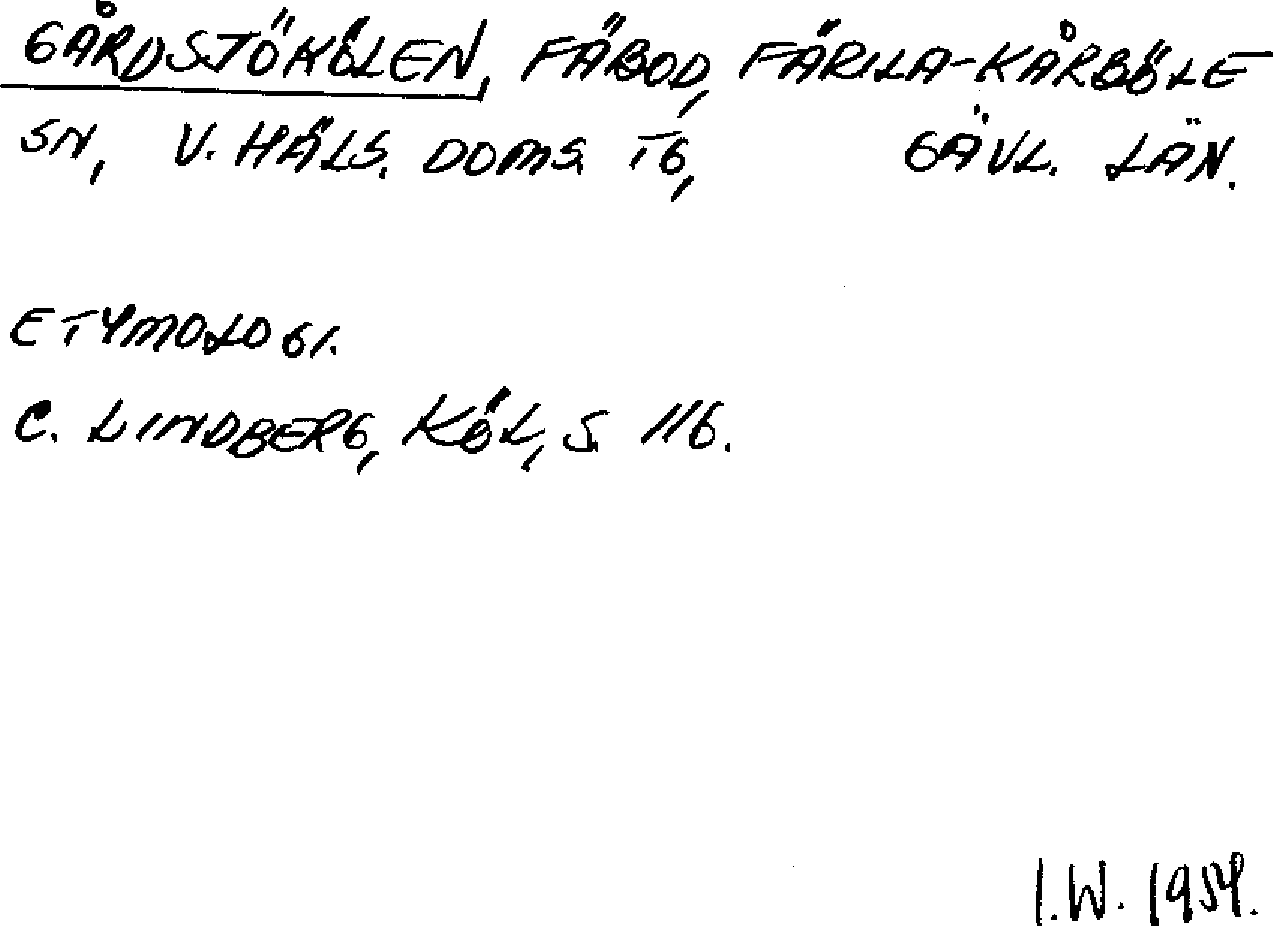 GÅRDSJÖKÖLEN, FÄBOD, FÄRILA-KÅRBÖLE
SN, V. HÄLS. DOMS. TG, GÄVL. LÄN.
ETYMOLOGI.
C. LINDBERG, KÖL, S. 116.
I.W. 1954.